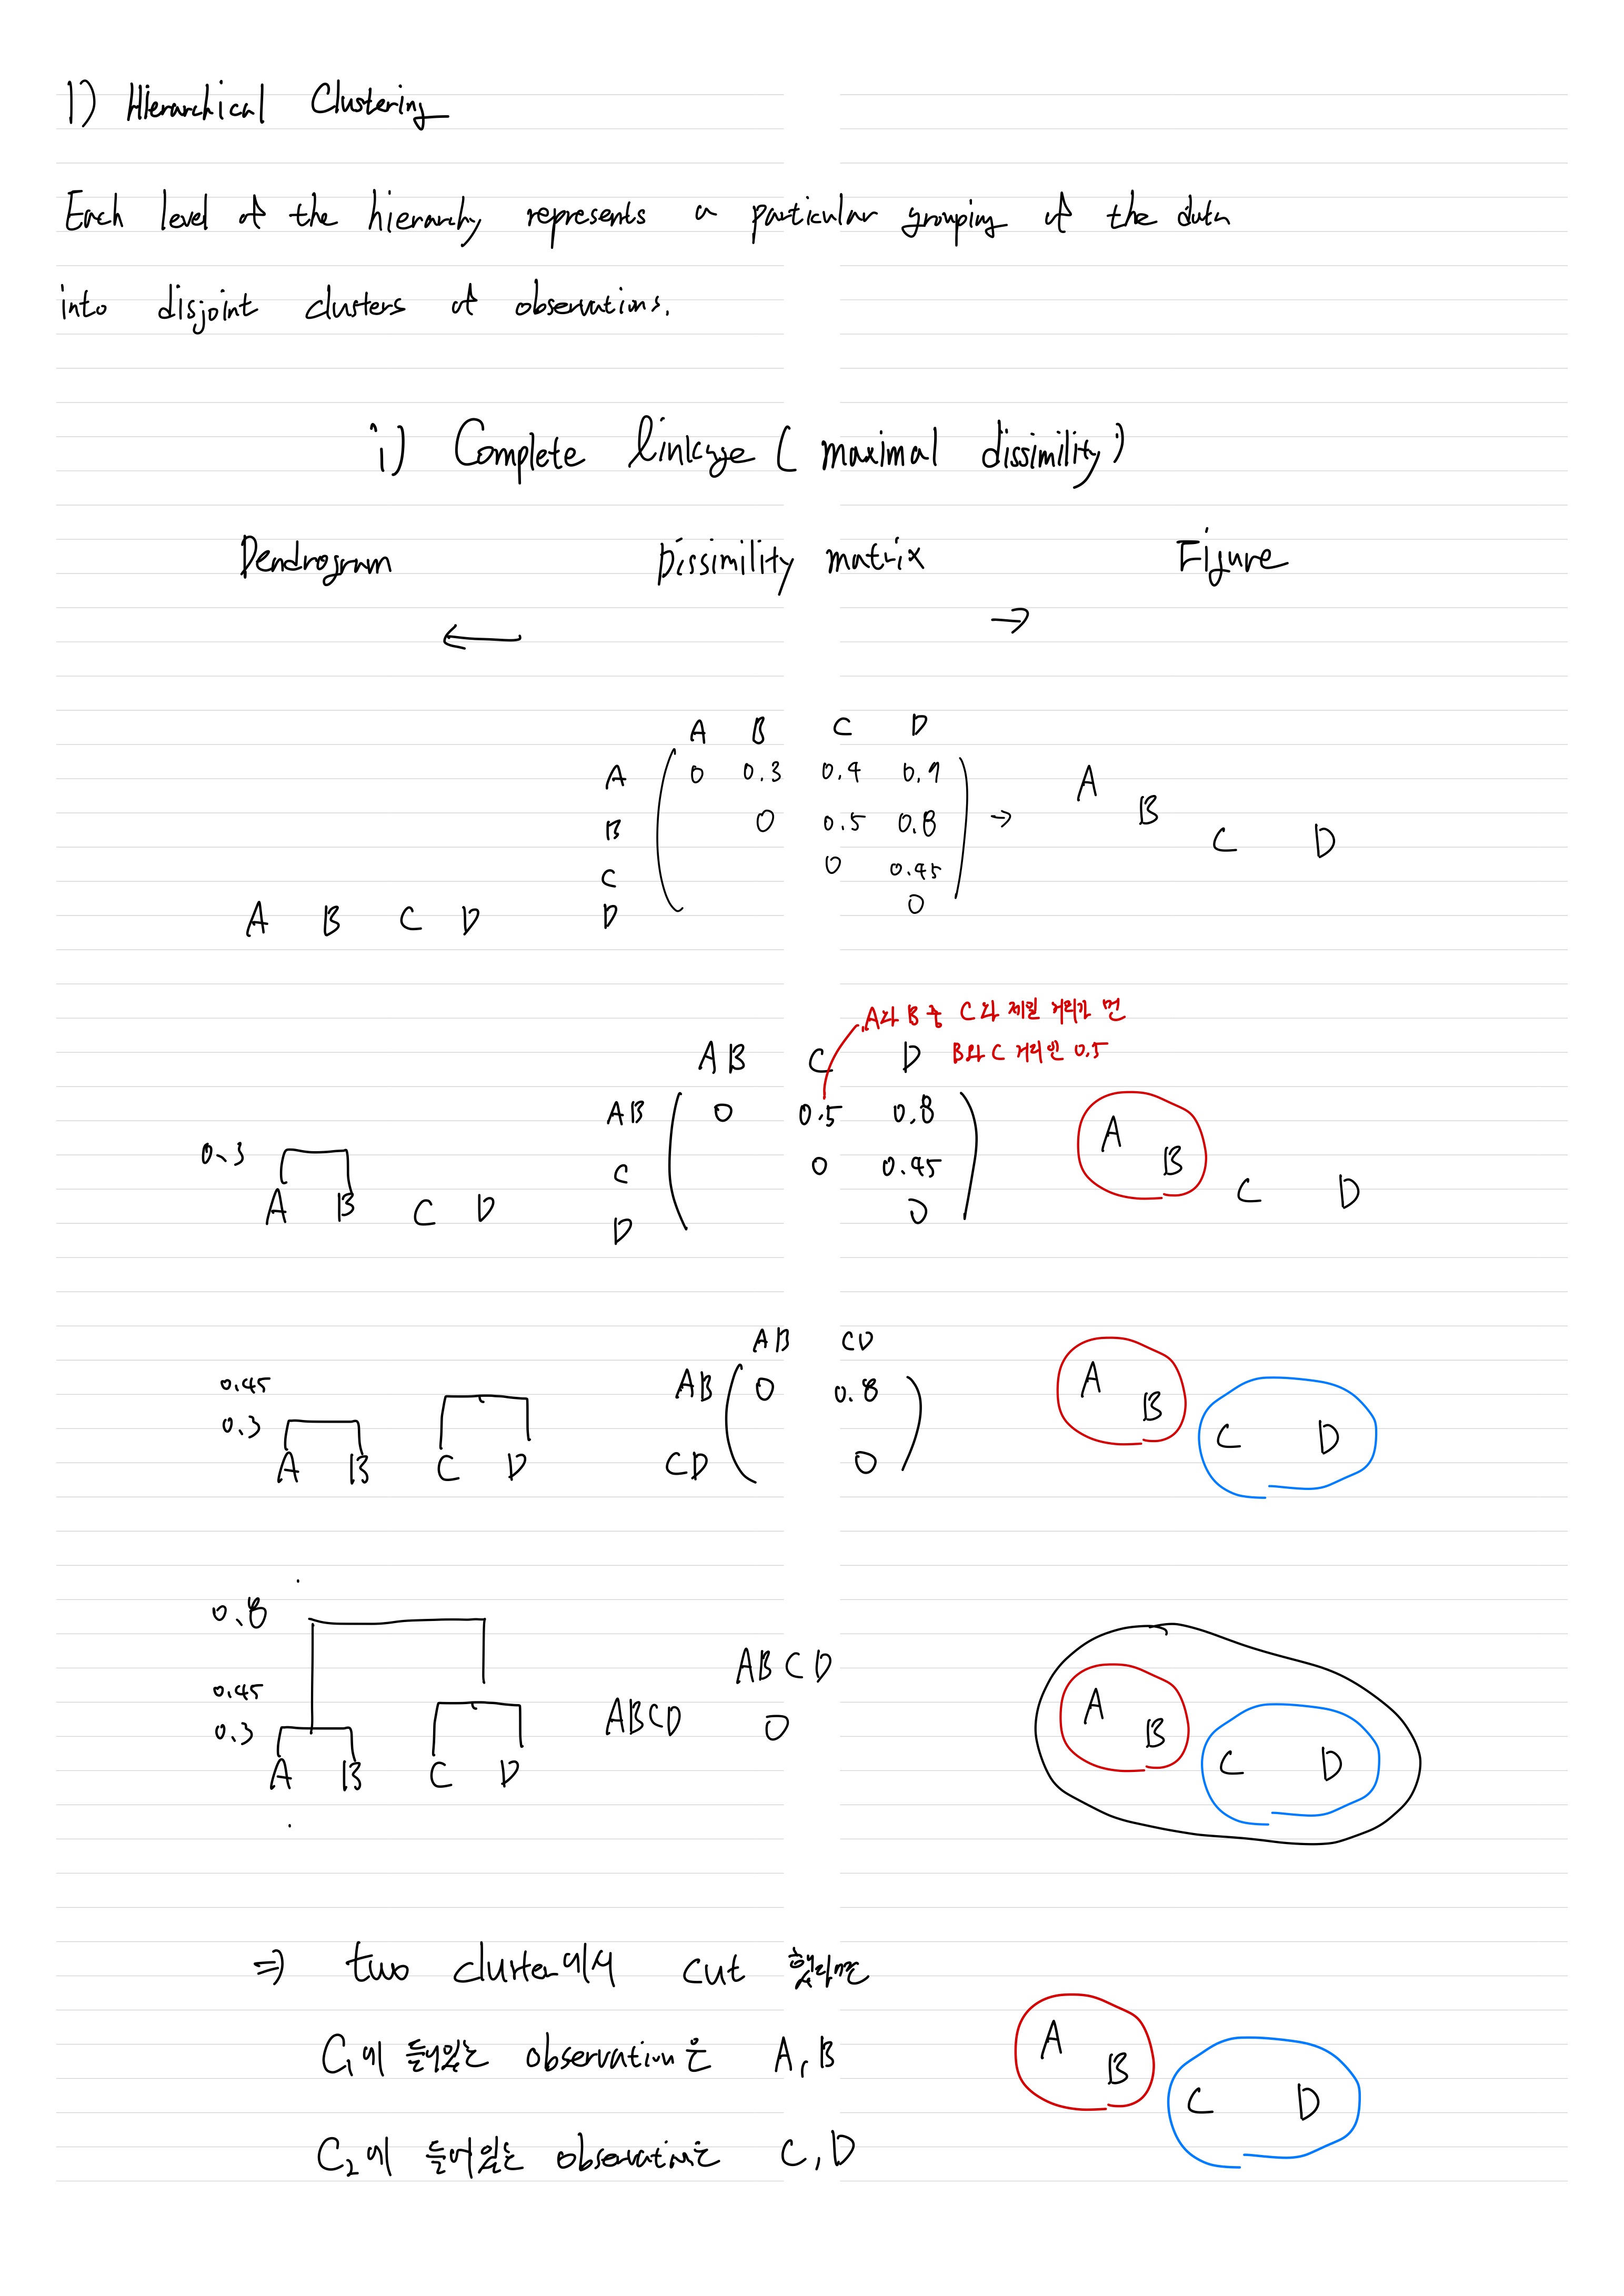 1) Hierarchical Clustering
Each level of the hierarchy represents a particular grouping of the data
into disjoint clusters of observations.
i) Complete linkage ( maximal dissimility )
Dendrogram Dissimility matrix Figure
← →
A B C D
A 0 0.3 0.4 0.7 → A
B 0 0.5 0.8 B
C 0 0.45 C D
A B C D D 0
A와 B 중 C와 제일 거리가 먼
B와 C 거리인 0.5
AB C D
AB 0 0.5 0.8 A
0.3 C 0 0.45 B
A B C D D 0 C D
AB CD
0.45 AB 0 0.8 A
0.3 B
A B C D CD 0 C D
0.8
ABCD
0.45 ABCD 0 A
0.3 B
A B C D C D
⇒ two cluster에서 cut 했다면
C₁에 들어있는 observation은 A, B A B
C D
C₂에 들어있는 observation은 C, D